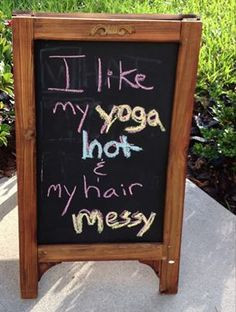 I like
my yoga
hot
&
my hair
messy